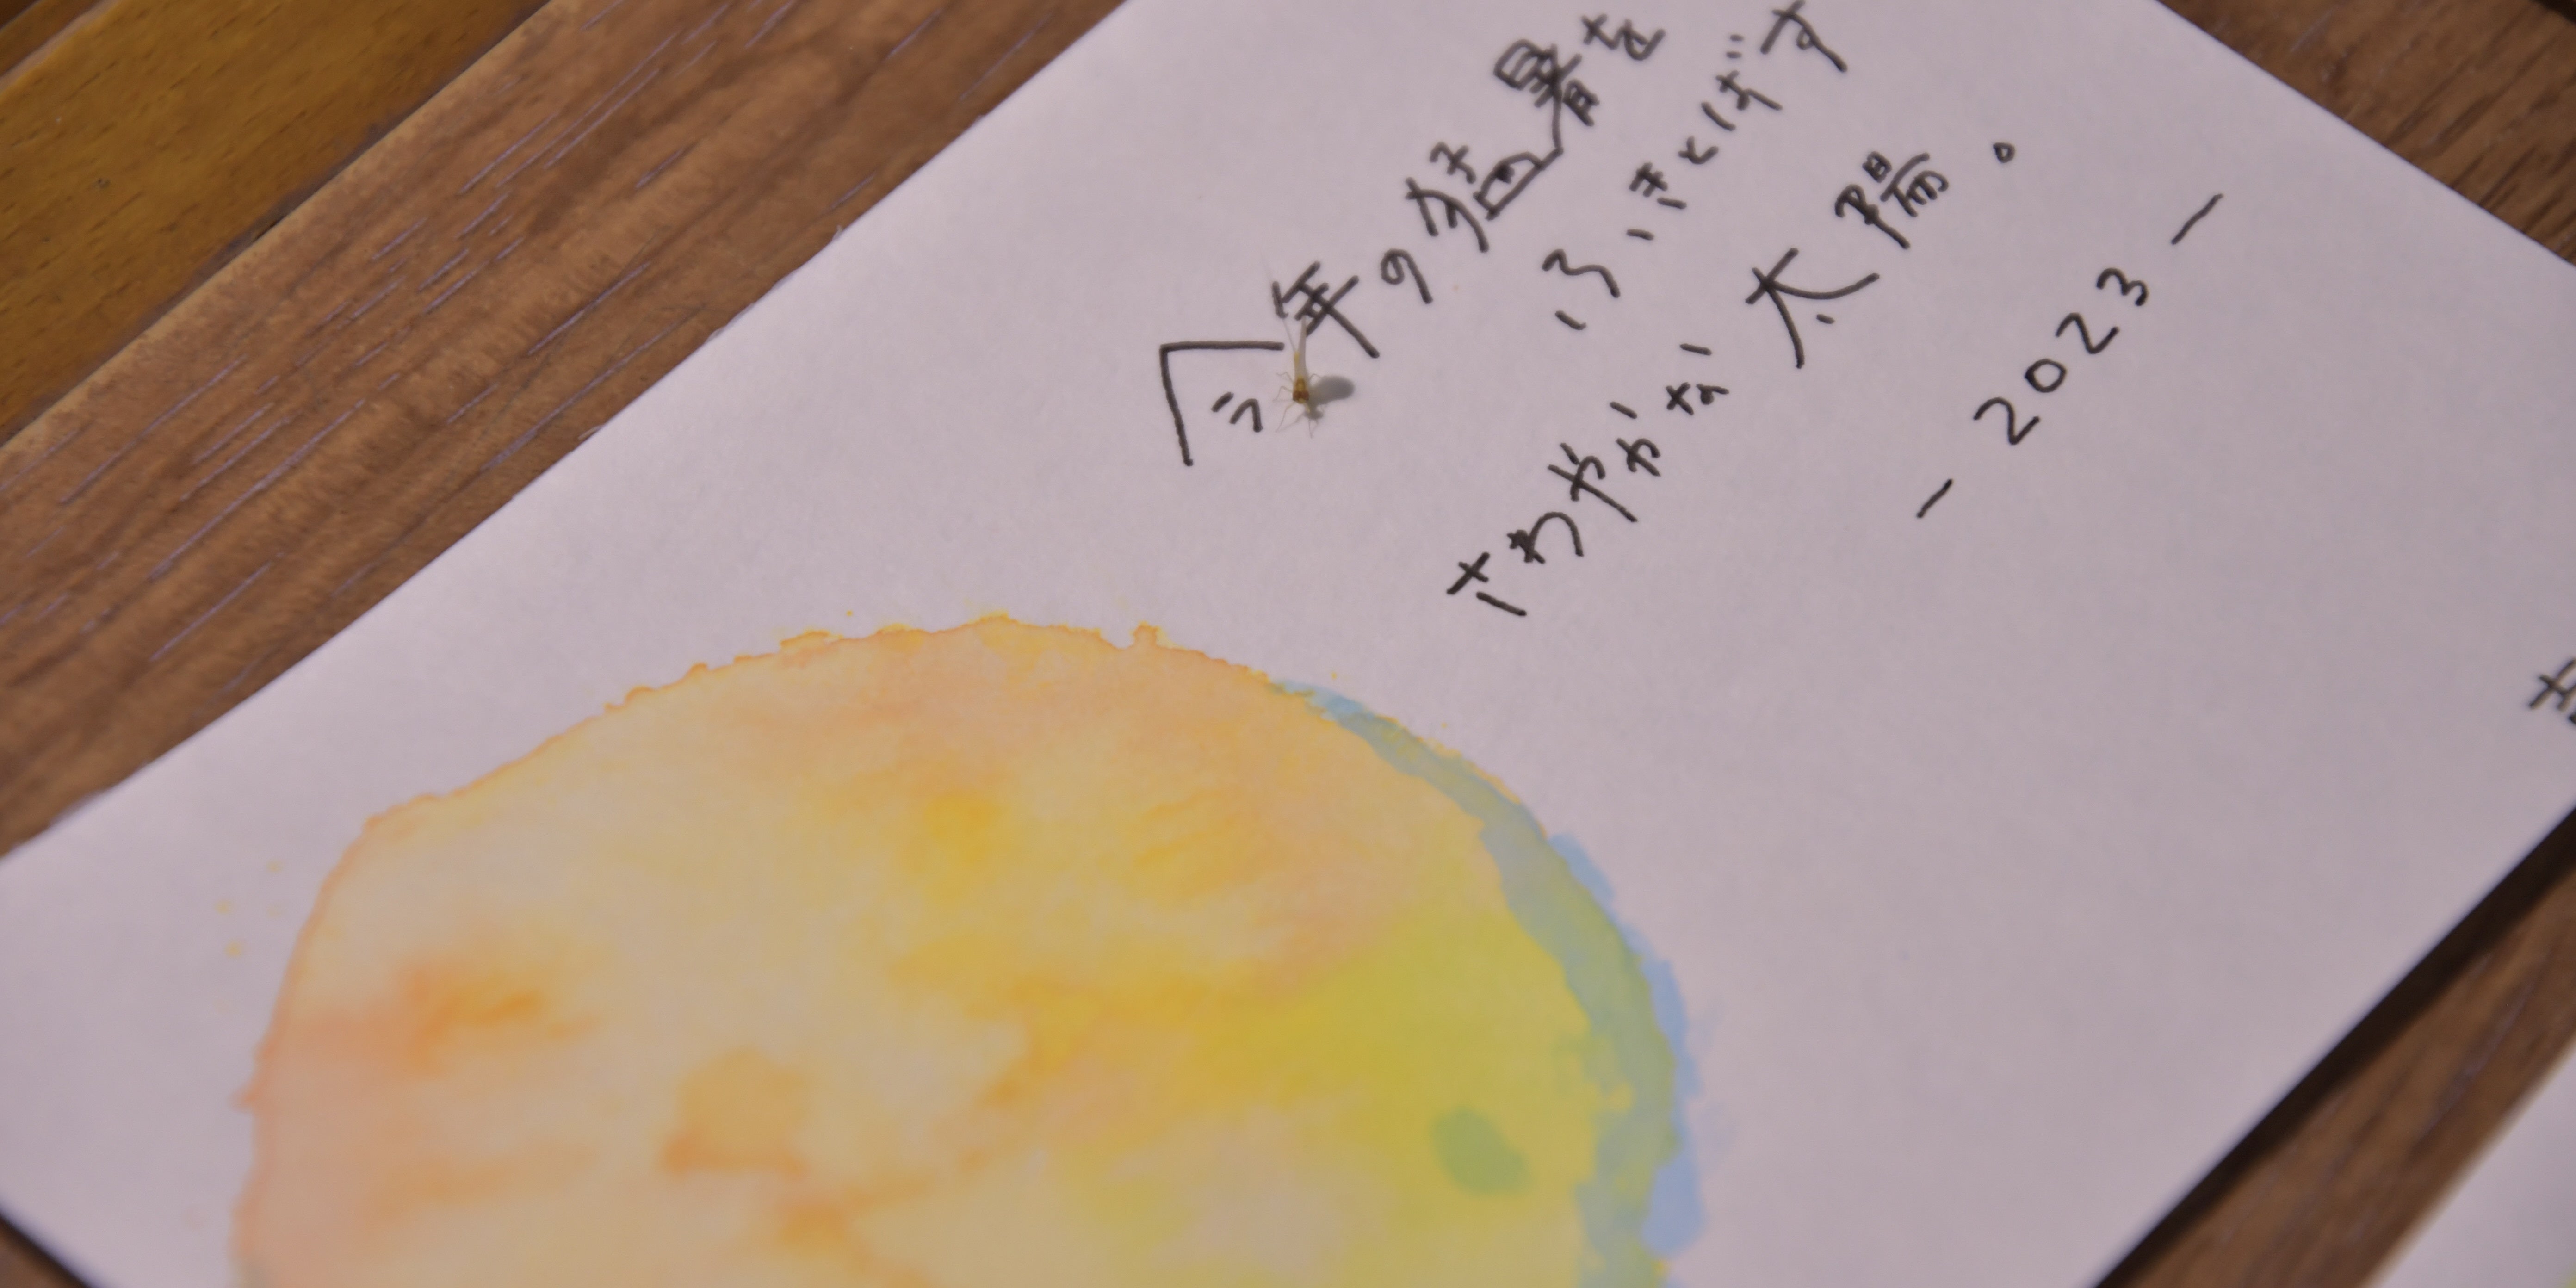 今年の猛暑を
ふきとばす
さわやかな太陽。
－2023－